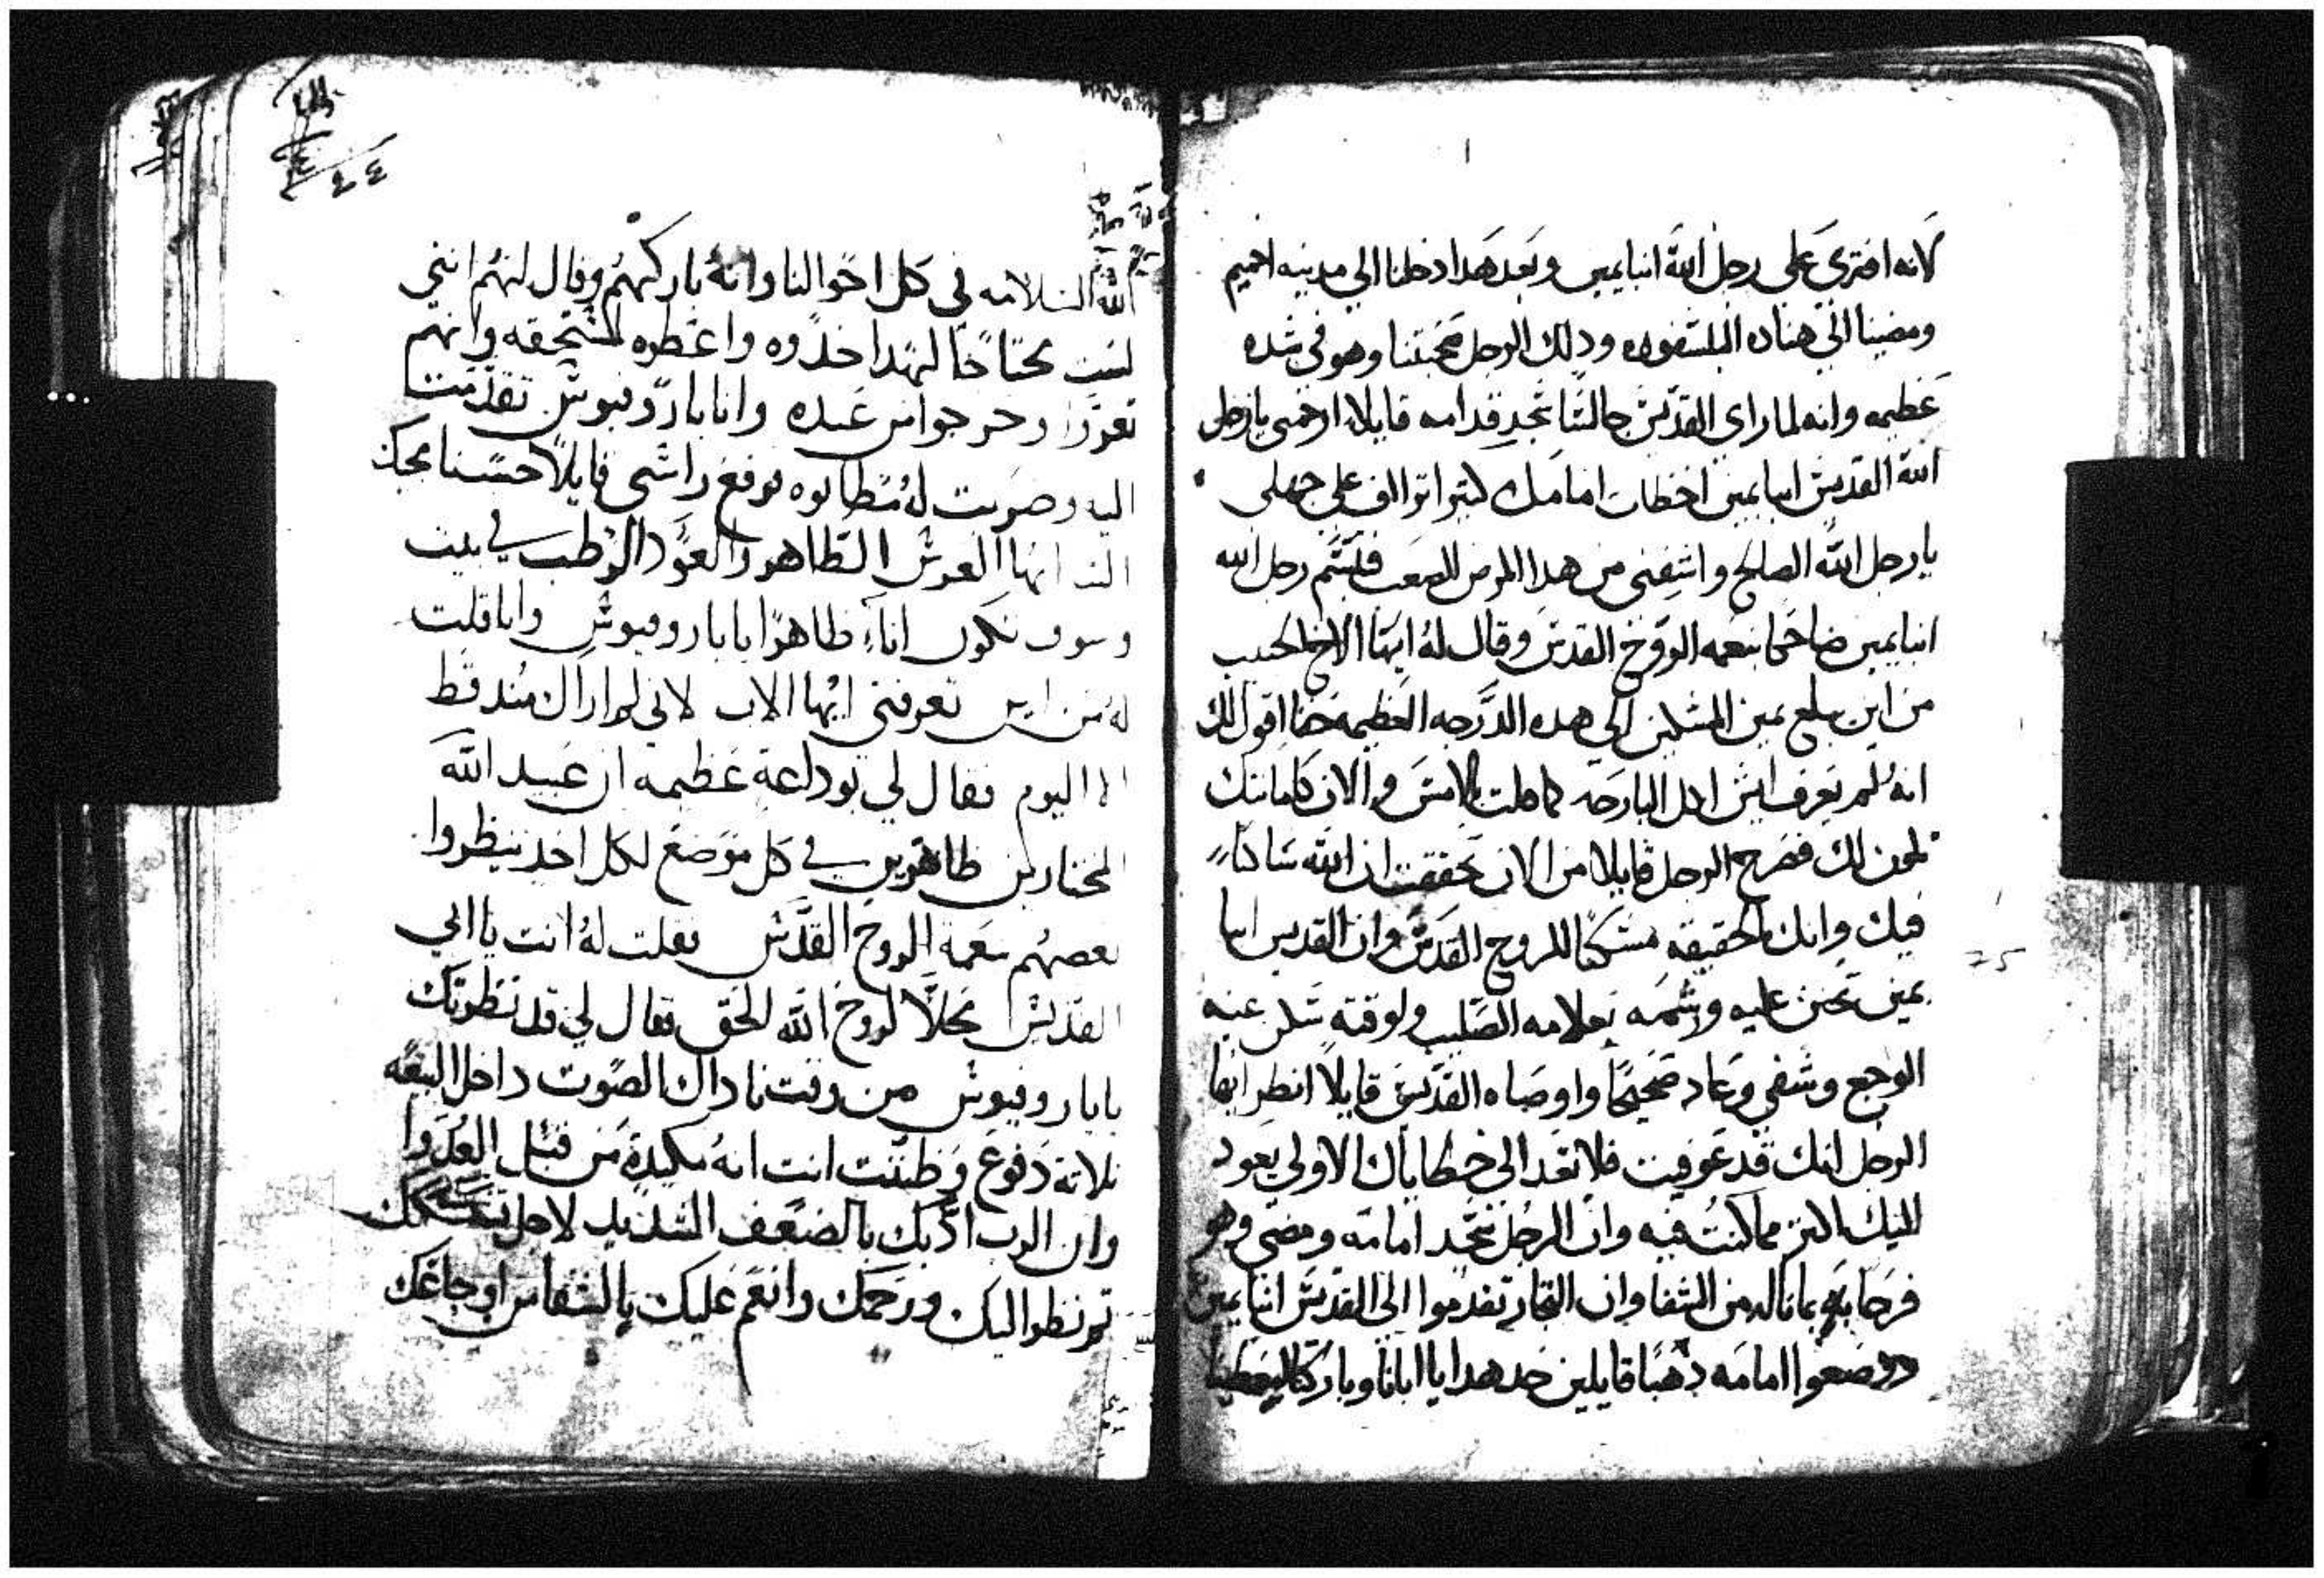 لانه افتري علي رجل الله انبا يمين وبعد هدا دخلنا الي مدينه اخميم
ومضينا الي هناك ودلك الرجل صحبتنا وهو في شده
عظيمه وانه لما راي القديس جالسًا سجد قدامه قايلا ارحمني يا رجل
الله القديس انبا يمين اخطات امامك كتيرا تراف علي جهلي
يا رجل الله الصالح واشفني من هدا المرض الصعب فتبسم رجل الله
انبا يمين ضاحكا بنعمه الروح القدس وقال لهُ ايها الاخ الحبيب
من اين بلغ يمين المسكين الي هده الدرجه العظيمه حقا اقول لك
انهُ لم يعرف ايش اكل البارحه كما قلت بالامس والان كاماننك
يكون لك فصرخ الرجل قايلا من الان تحققت ان الله ساكنًا
فيك وانك بالحقيقه مسكنًا للروح القدس وان القديس انبا
يمين تحنن عليه ورشمه بعلامه الصليب ولوقته سكن عنه
الوجع وشفي وعاد صحيحًا واوصاه القديس قايلاً انظر ايها
الرجل انك قد عوفيت فلا تعد الي خطاياك الاولي يعود
اليك اكتر مما كنتُ فيه وان الرجُل سجد امامه ومضي وهو
فرحا بما ناله من الشفا وان التجار تقدموا الي القديس انبا يمين
ووضعوا امامه دهبًا قايلين خد هدا يا ابانا وباركنا ليعطينا
الله السلامه في كل احوالنا وانهُ باركهُم وقال لهُم انني
لست محتاجًا لهدا خدوه واعطوه لمستحقه وانهم
تعزوا وخرجوا من عنده وانا بابار وفيوس تقدمت
اليه وضربت لهُ مُطانوه فرفع راسي قايلاً حسنا مجيك
الينا ايها الغرس الطاهر والعود الرطب في بيت
وسوف تكون اناءً طاهرًا يا باروفيوس وانا قلت
لهُ من اين تعرفني ايُها الاب لاني لم اراك مُند قط
الا اليوم فقال لي بوداعة عظيمه ان عبيد الله
المختارين ظاهرين في كل موضع لكل احد ينظروا
بعضهُم بنعمة الروح القدس فقلت لهُ انت يا ابي
القديس محلاً لروح الله الحق فقال لي قد نظرتك
يا باروفيوس من وقت ناداك الصوت داخل البيعه
تلاتة دفوع وظننت انت انهُ مكيدةً من قبل العُدوا
وان الرب ادبك بالضعف الشديد لاجل تشكك
تم نظر اليك ورحمك وانعم عليك بالشفا من اوجاعك